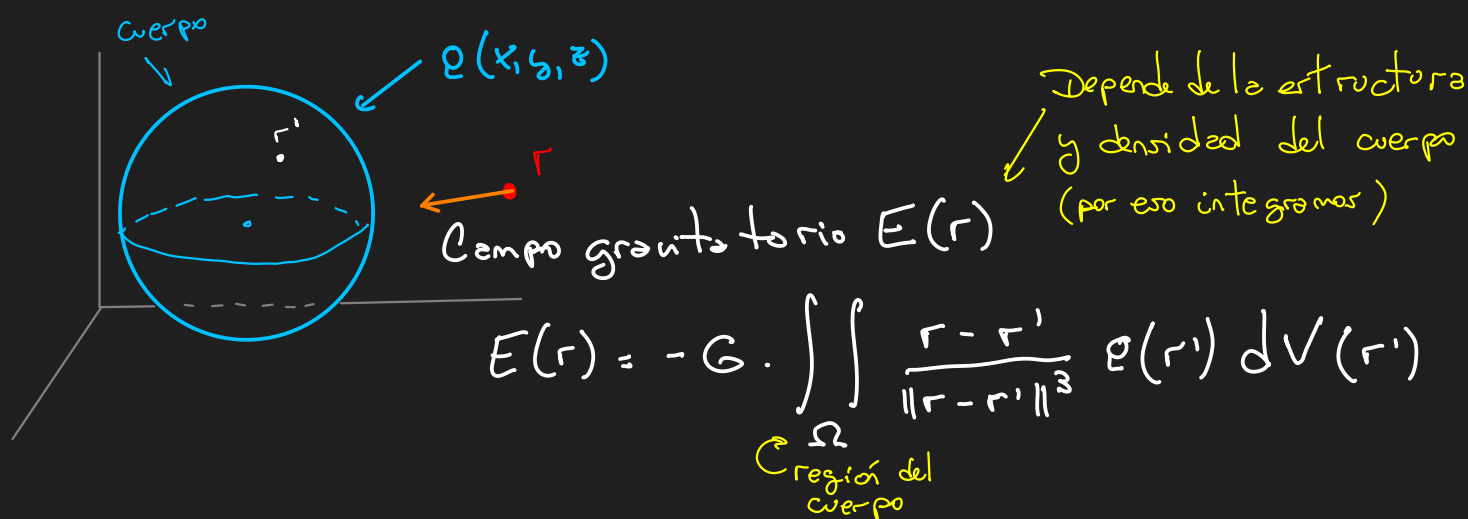 cuerpo
ρ(x,y,z)
r'
r
Depende de la estructura
y densidad del cuerpo
(por eso integramos)
Campo gravitatorio E(r)
E(r) = -G · ∬_Ω (r - r')/‖r - r'‖³ ρ(r') dV(r')
región del
cuerpo